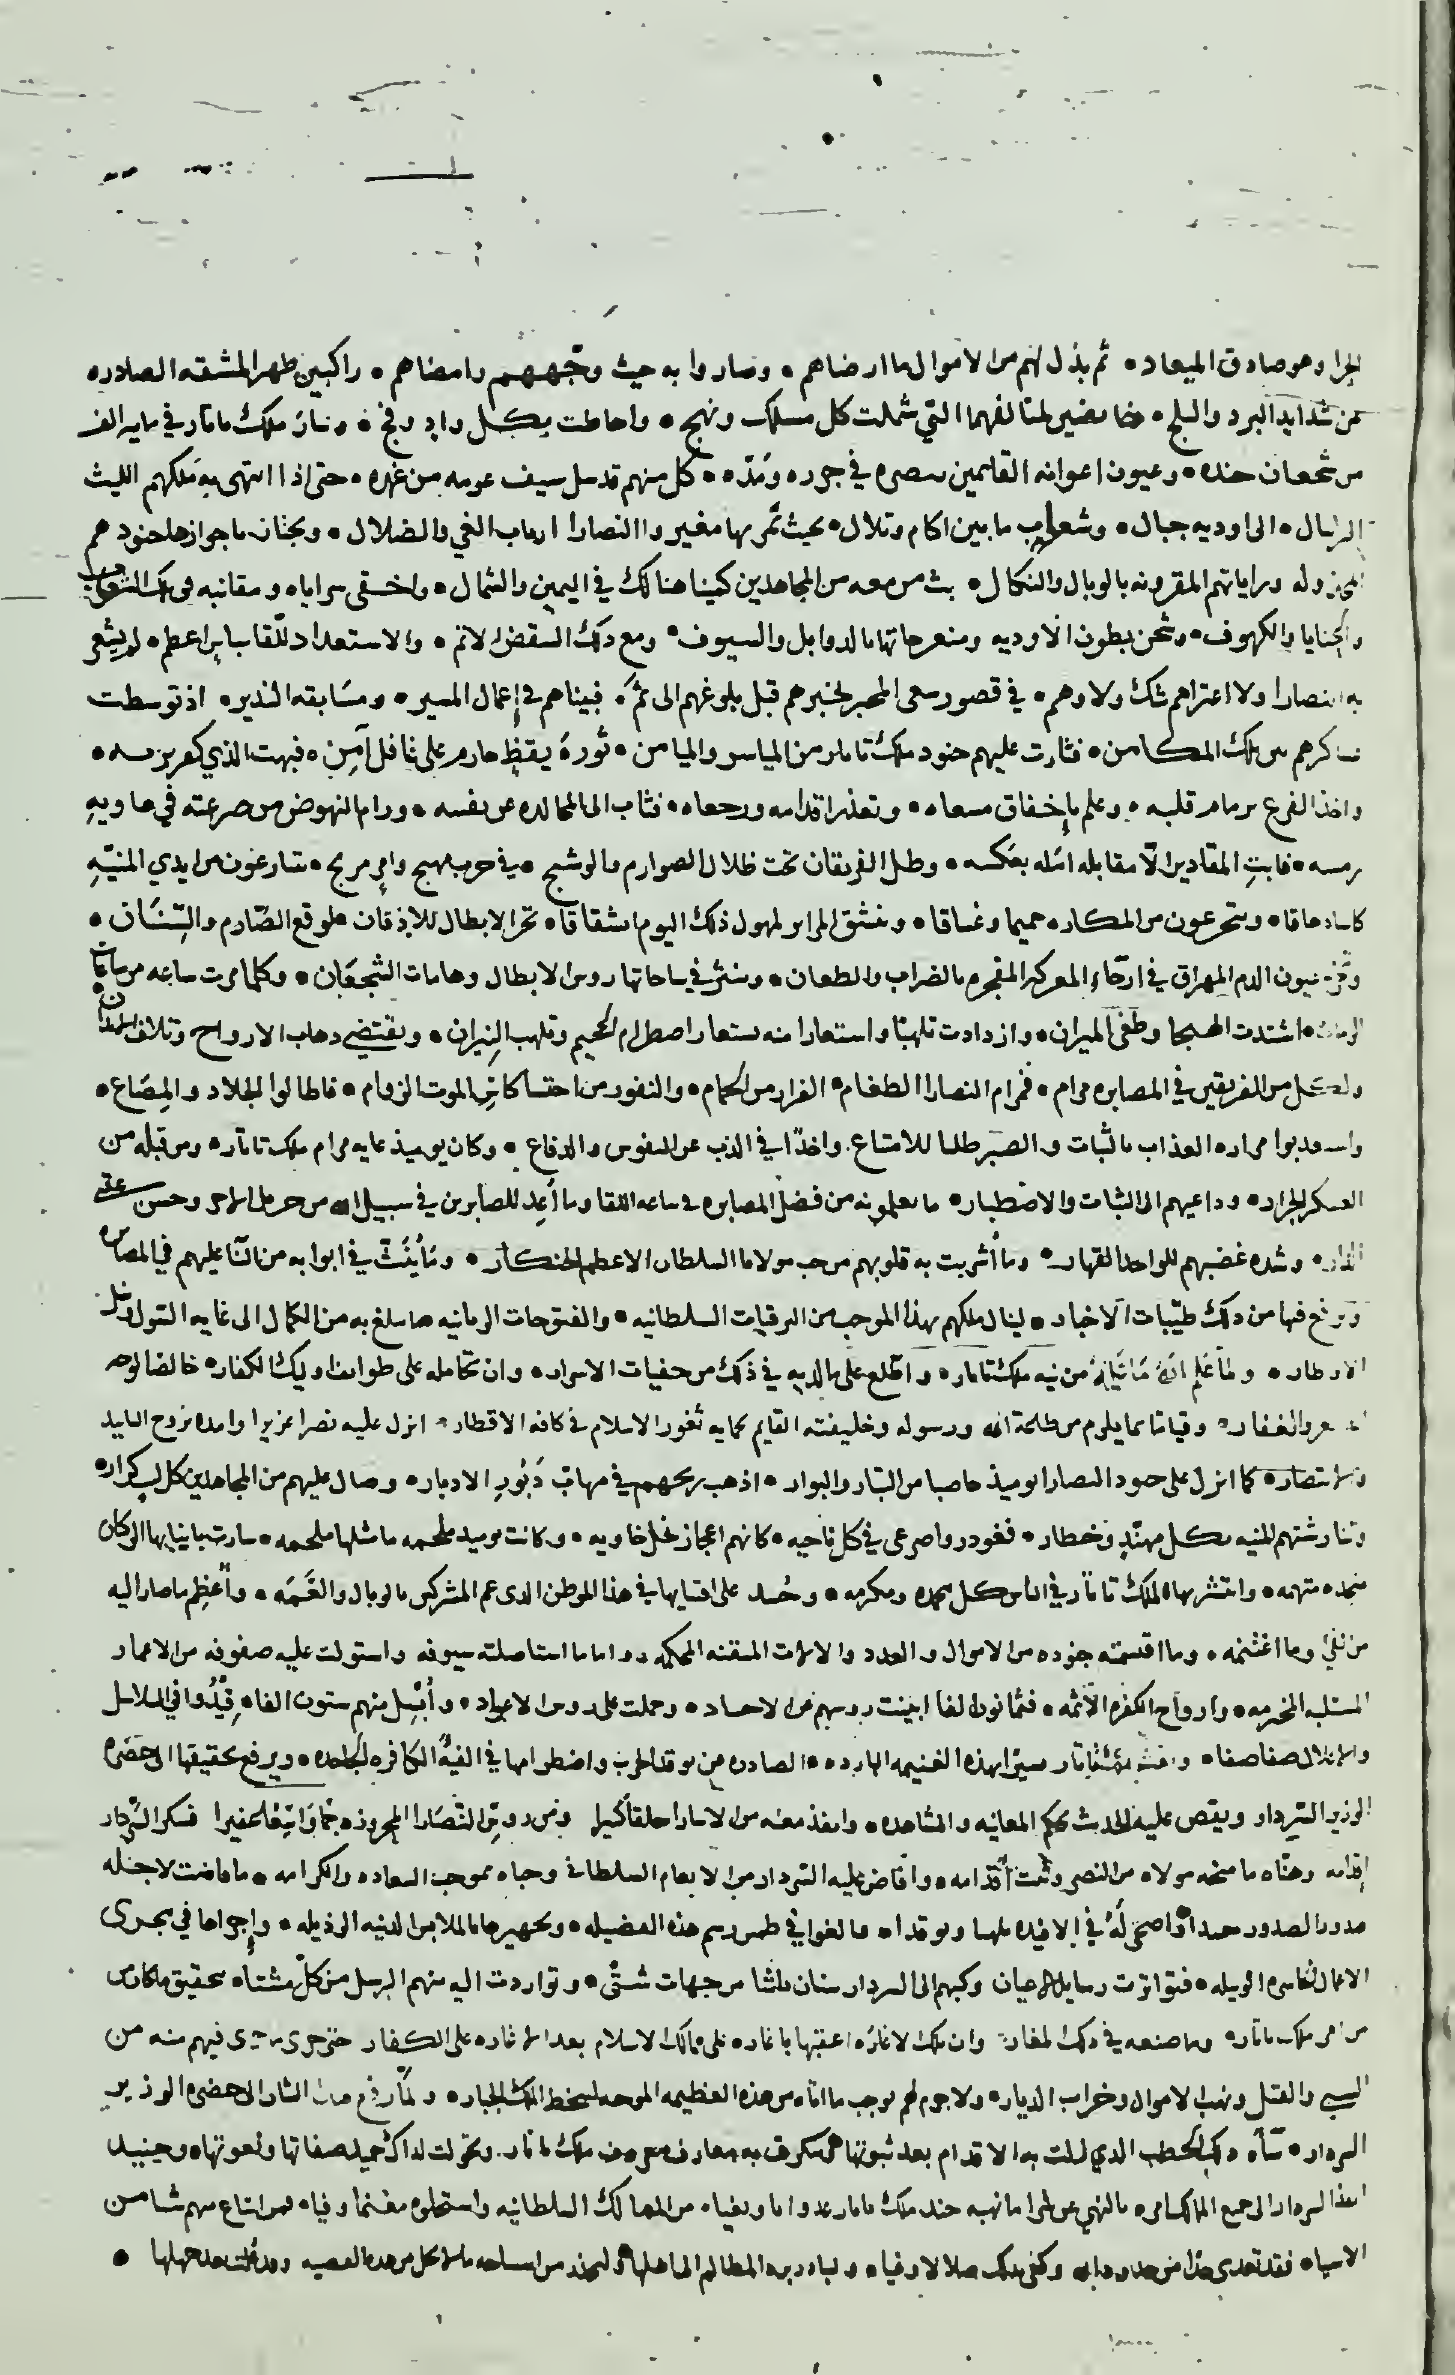 الجزا وهو صادق الميعاد • ثم بذل لهم من الاموال ما ارضاهم • وساروا به حيث وجّههم وامضاهم • راكبين ظهر المشقه الصادره
من شدايد البرد والثلج • التي شملت كل مسلك ونهج • واحاطت بكل واد وفج • وسار ملك تاتار في مايه الف
من شجعان جنده • وعيون اعوانه القايمين بنصره في جزره ومَدّه • كل منهم قد سل سيف عزمه من غمده • حتى اذا انتهى به ملكهم الليث
الريبال • الى اوديه جبال • وشعاب ما بين اكام وتلال • بحيث تمر بها مغيروا النصارا ارباب الغي والضلال • وجنودهم
المخذوله وراياتهم المقرونه بالوبال والنكال • بث من معه من المجاهدين كمينا هنالك في اليمين والشمال • واخفى سراياه ومقانبه في تلك الشعاب
والحنايا والكهوف • وشحن بطون الاوديه ومنعرجاتها بالذوابل والسيوف • ومع ذلك التيقض الاتم • والاستعداد للقا باس اعظم • لم يشعر
به النصارا ولا اعتراهم شك ولا وهم • في قصور سعى المخبر لخبرهم قبل بلوغهم الى ثم • فبيناهم في إعمال المسير • ومسابقه النذير • اذ توسطت
عساكرهم بين تلك المكامن • فثارت عليهم جنود ملك تاتار من المياسر والميامن • ثورة يقظٍ حازم على غافل آمِن • فبهت الذي كفر
واخذ الفزع بزمام قلبه • وعلم بإخفاق مسعاه • وتعذر اقدامه ورجعاه • فثاب الى المجالده عن نفسه • ورام النهوض من صرعته في هاويهِ
رمسه • فابتِ المقادير الّا مقابله امَله بعَكسه • وظل الفريقان تحت ظلال الصوارم والوشيج • في حرب مهيج وامر مريج • يتنازعون من ايدي المنيّهِ
كاسا دهاقا • ويتجرعون من المكاره حميما وغساقا • وتنشق المراير لهول ذلك اليوم انشقاقا • تخر الابطال للاذقان لموقع الصّارم والسِّنَان •
الدم المهراق في ارجَاء المعركه المفجره بالضراب والطعان • وينثر في ساحاتها روس الابطال وهامات الشجعَان • وكلما مرت ساعه من ساعات
الزمان • اشتدت الهيجا وطغى الميزان • وازدادت تلهبًا واستعارا منه يستعار اضطرام الجحيم وتلهب النِيران • ويقتضي ذهاب الارواح وتلاف الابدان
ولكل من الفريقين في المصابره مرام • فمرام النصارا الطغام • الفرار من الحمام • والنفور من احتسا كاسِ الموت الزوام • فاطالوا الجلاد والمِصَاع •
واستعذبوا مراره العذاب بالثبات والصبَر طلبا للامتناع • واخذًا في الذب عن النفوس والدفاع • وكان يوميذ غايه مرام ملك تاتار • ومن قبله من
العسكر الجرار • وداعيهم الى الثبات والاصْطبار • ما يعلمونه من فضل المصابره في ساعه اللقا وما أُعِد للصابرين في سبيل الله من جزيل الاجر وحسن عقبى
الدار • وشده غضبهم للواحد القهار • وما أُشربت به قلوبهم من حب مولانا السلطان الاعظم الخنكار • وما يُنَثّ في ابوابه من الثنا عليهم في المصابره
ويرفع فيها من ذلك طيّبات الاخبار • لينال ملكهم بهذا الموجب من الترقيات السلطانيه • والفتوحات الربانيه ما يبلغ به من الكمال الى غايه السول ونيل
الاوطار • ولما عَلِم الله مَا من نيه ملك تاتار • واطّلع على ما لديه في ذلك من خفيات الاسرار • وان تحامله على طوايف اوليك الكفار • خالصا لوجه
العزيز الغفار • وقياما بما يلزم من طاعة الله ورسوله وخليفته القايم بحمايه ثغور الاسلام في كافه الاقطار • انزل عليه نصرا عزيزا وامده بروح التاييد
والانتصار • كما انزل على جنود النصارا يوميذ حاصبا من التبار والبوار • اذهب ريحهم في مهابّ دَبُورِ الادبار • وصال عليهم من المجاهدين كل ليث كرار •
وتناوشتهم المنيه بكل مهنّدٍ وخطار • فغودروا صرعى في كل ناحيه • كانهم اعجاز نخل خاويه • وكانت يوميذ ملحمه ما مثلها ملحمه • سارت بانبايها الركبان
منجده متهمه • وانتشر بها لملك تاتار في الناس كل محمده ومكرمه • وحُسد على اقتنايها في هذا الموطن الذي عم المشركين بالوبال والغَمّه • وأعظِم بما صار اليه
من فيئ وما اغتنمه • وما اقتسمته جنوده من الاموال والعدد والالات المتقنه المحكمه • واما ما استاصلته سيوفه واستولت عليه صفوفه من الاعمار
المستلبه المخترمه • وارواح الكفره الاثمه • فثمانون الفا ابينت روسهم عن الاجساد • وحملت على روس الاعواد • وأُسِر منهم ستون الفا • قُيِّدُوا في السلاسل
والاغلال صفا صفا • تاتار مبشرًا بهذه الغنيمه البارده • الصادره عن توقد الحرب واضطرامها في الفيهِ الكافره الجاحده • ويرفع تحقيقها الى حضره
الوزير السّردار ويقص عليه الحديث بحكم المعاينه والمشاهده • وانفذ معه من الاسارا خلقا كثيرا ومن روسِ النّصَارا المجزوزه جمًا وَاسِعًا غفيرا فشكر السّردار
إقدامه وهنّاه ما منحه مولاه من النصر وثبّت أقدامه • وافاض عليه السّردار من الانعام السلطاني وحباه بموجب السعاده والكرامه • ما فاضت لاجله
صدور الصدور حسدا واضحَى لَهُ في الافيده تلهبا وتوقدا • فبالغوا في طمس رسم هذه الفضيله • وتجهيزها بالملابس الدنيه الرذيله • وإجراها في مجرى
الاعمال الخاسره الوبيله • فتواترت رسايل الاعيان وكتبهم الى السردار سنان باشا من جهات شتّى • وتواردت اليه منهم الرسل من كلّ مشتاه بتحقيق ما كان
من امر ملك تاتار • وما صنعه في ذلك المغار • وان تلك الاغارَه اعقبتها باغاره على ممالك الاسلام بعد الاغاره على الكفار حتى جرى ما جرى فيهم منه من
السبي والقتل ونهب الاموال وخراب الديار • ولا جرم لهم يوجب ما اتاه من هذه العظيمه الموجبه لسخط الملك الجبار • ولمّا رفع الى حضره الوزير
السردار • سآه ذلك الخطب الذي زلت به الاقدام بعد ثبوتها • ونكرت به معارف معروف ملك تاتار • وتحولت لذاك حميد صفاتها ونعوتها • وحينيذ
انفذ السردار الى جميع الممالك بالنهي عن شرا ما نهبه جند ملك تاتار عدوانا وبغيا • من الممالك السلطانيه واستحلوه مغنما وفيا • فمن ابتاع منهم شيا من
الاشيا • فقد تعدى حدا من حدود الله • وكفى بذلك ضلالا وغيا •